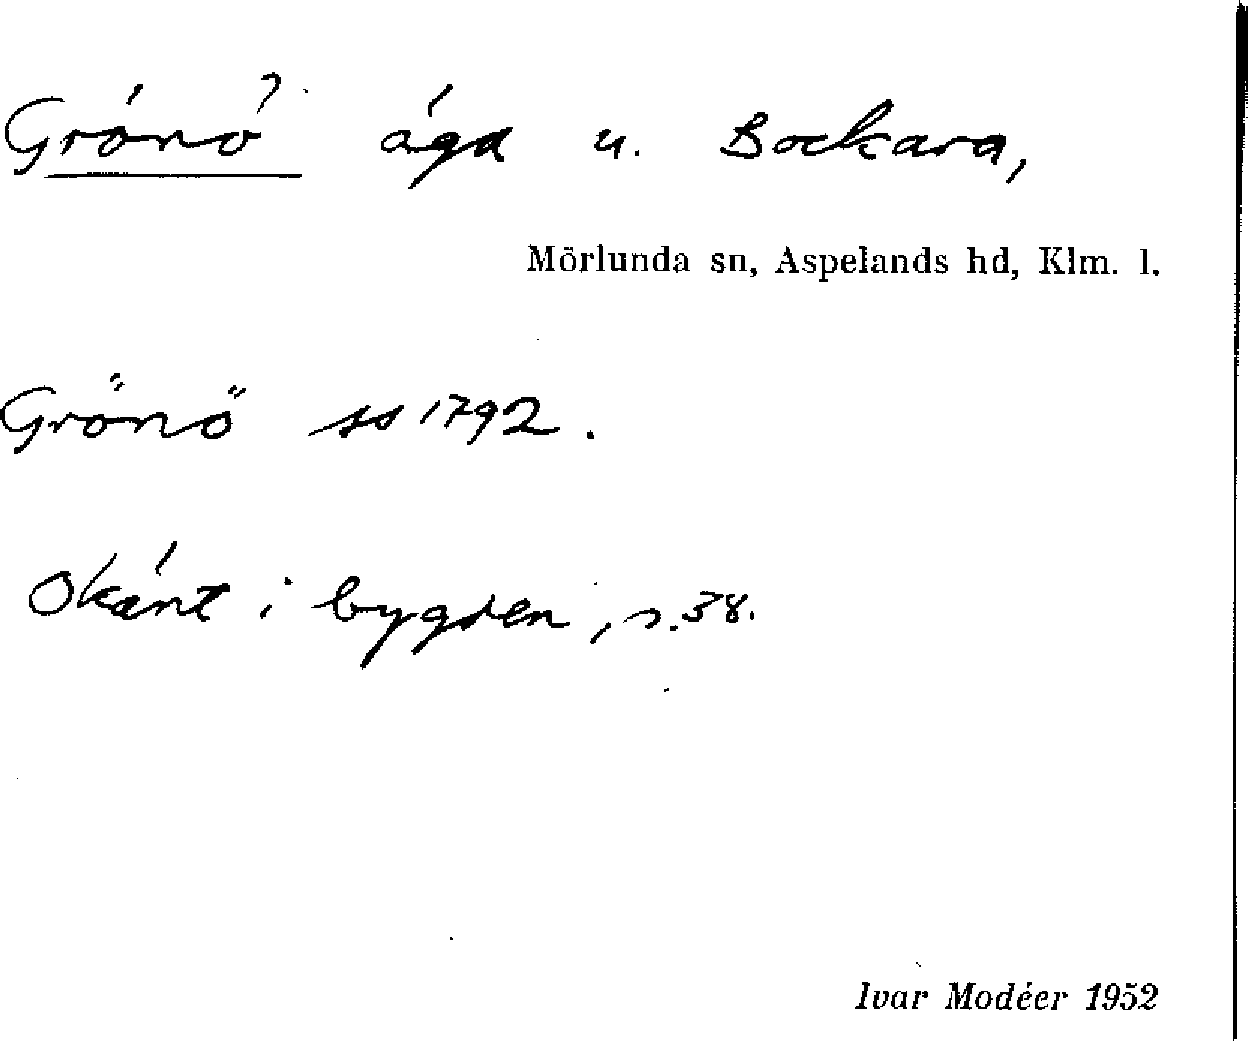 Grönö? äga u. Bockara,
Mörlunda sn, Aspelands hd, Klm. l.
Grönö ss 1792.
Okänt i bygden, s. 38.
Ivar Modéer 1952